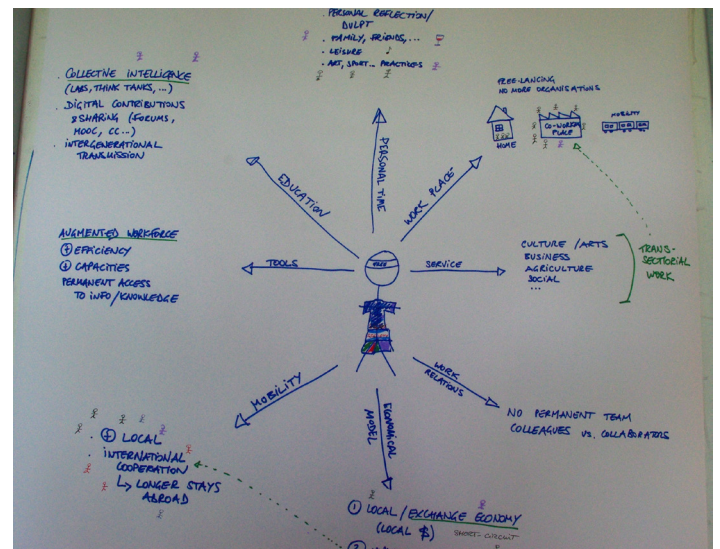 . PERSONAL REFLECTION/
. FAMILY, FRIENDS,...
. LEISURE
. ART, SPORT... PRACTICES
. COLLECTIVE INTELLIGENCE
(LABS, THINK TANKS,...)
. DIGITAL CONTRIBUTIONS
& SHARING (FORUMS,
MOOC, CC...)
. INTERGENERATIONAL
TRANSMISSION
FREE-LANCING
NO MORE ORGANISATIONS
HOME
CO-WORKING
PLACE
MOBILITY
EDUCATION
PERSONAL TIME
WORK PLACE
AUGMENTED WORKFORCE
+ EFFICIENCY
CAPACITIES
PERMANENT ACCESS
TO INFO/KNOWLEDGE
TOOLS
SERVICE
CULTURE / ARTS
BUSINESS
AGRICULTURE
SOCIAL
...
TRANS-
SECTORIAL
WORK
MOBILITY
ECONOMICAL
MODEL
WORK
RELATIONS
NO PERMANENT TEAM
COLLEAGUES VS. COLLABORATORS
. + LOCAL
. INTERNATIONAL
COOPERATION
↳ LONGER STAYS
ABROAD
1 LOCAL / EXCHANGE ECONOMY
(LOCAL $) SHORT-CIRCUIT
2